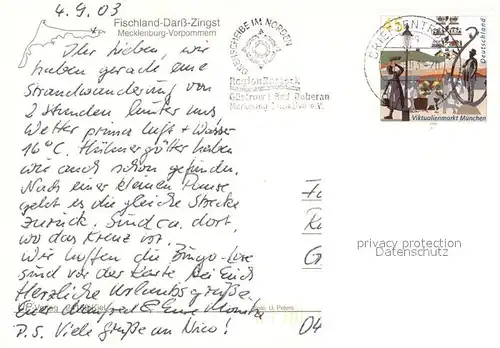 4.9.03
Fischland-Darß-Zingst
Mecklenburg-Vorpommern
Ihr Lieben wir
haben gerade eine
Strandwanderung von
2 Stunden hinter uns
Wetter prima Luft + Wasser
16°C. Hühnergötter haben
wir auch schon gefunden.
Nach einer kleinen Pause
geht es die gleiche Strecke
zurück. Sind ca. dort,
wo das Kreuz vor.
Wir hoffen die Bingo-Lose
sind vor der Karte bei Euch
Herzliche Urlaubsgrüße
Euer Manfred & Eure Monika
P.S. Viele Grüße an Nico!
BRIEFZENTRUM
Region Rostock
Güstrow Bad Doberan
45
Deutschland
Viktualienmarkt München
privacy protection
Datenschutz
U. Peters
04